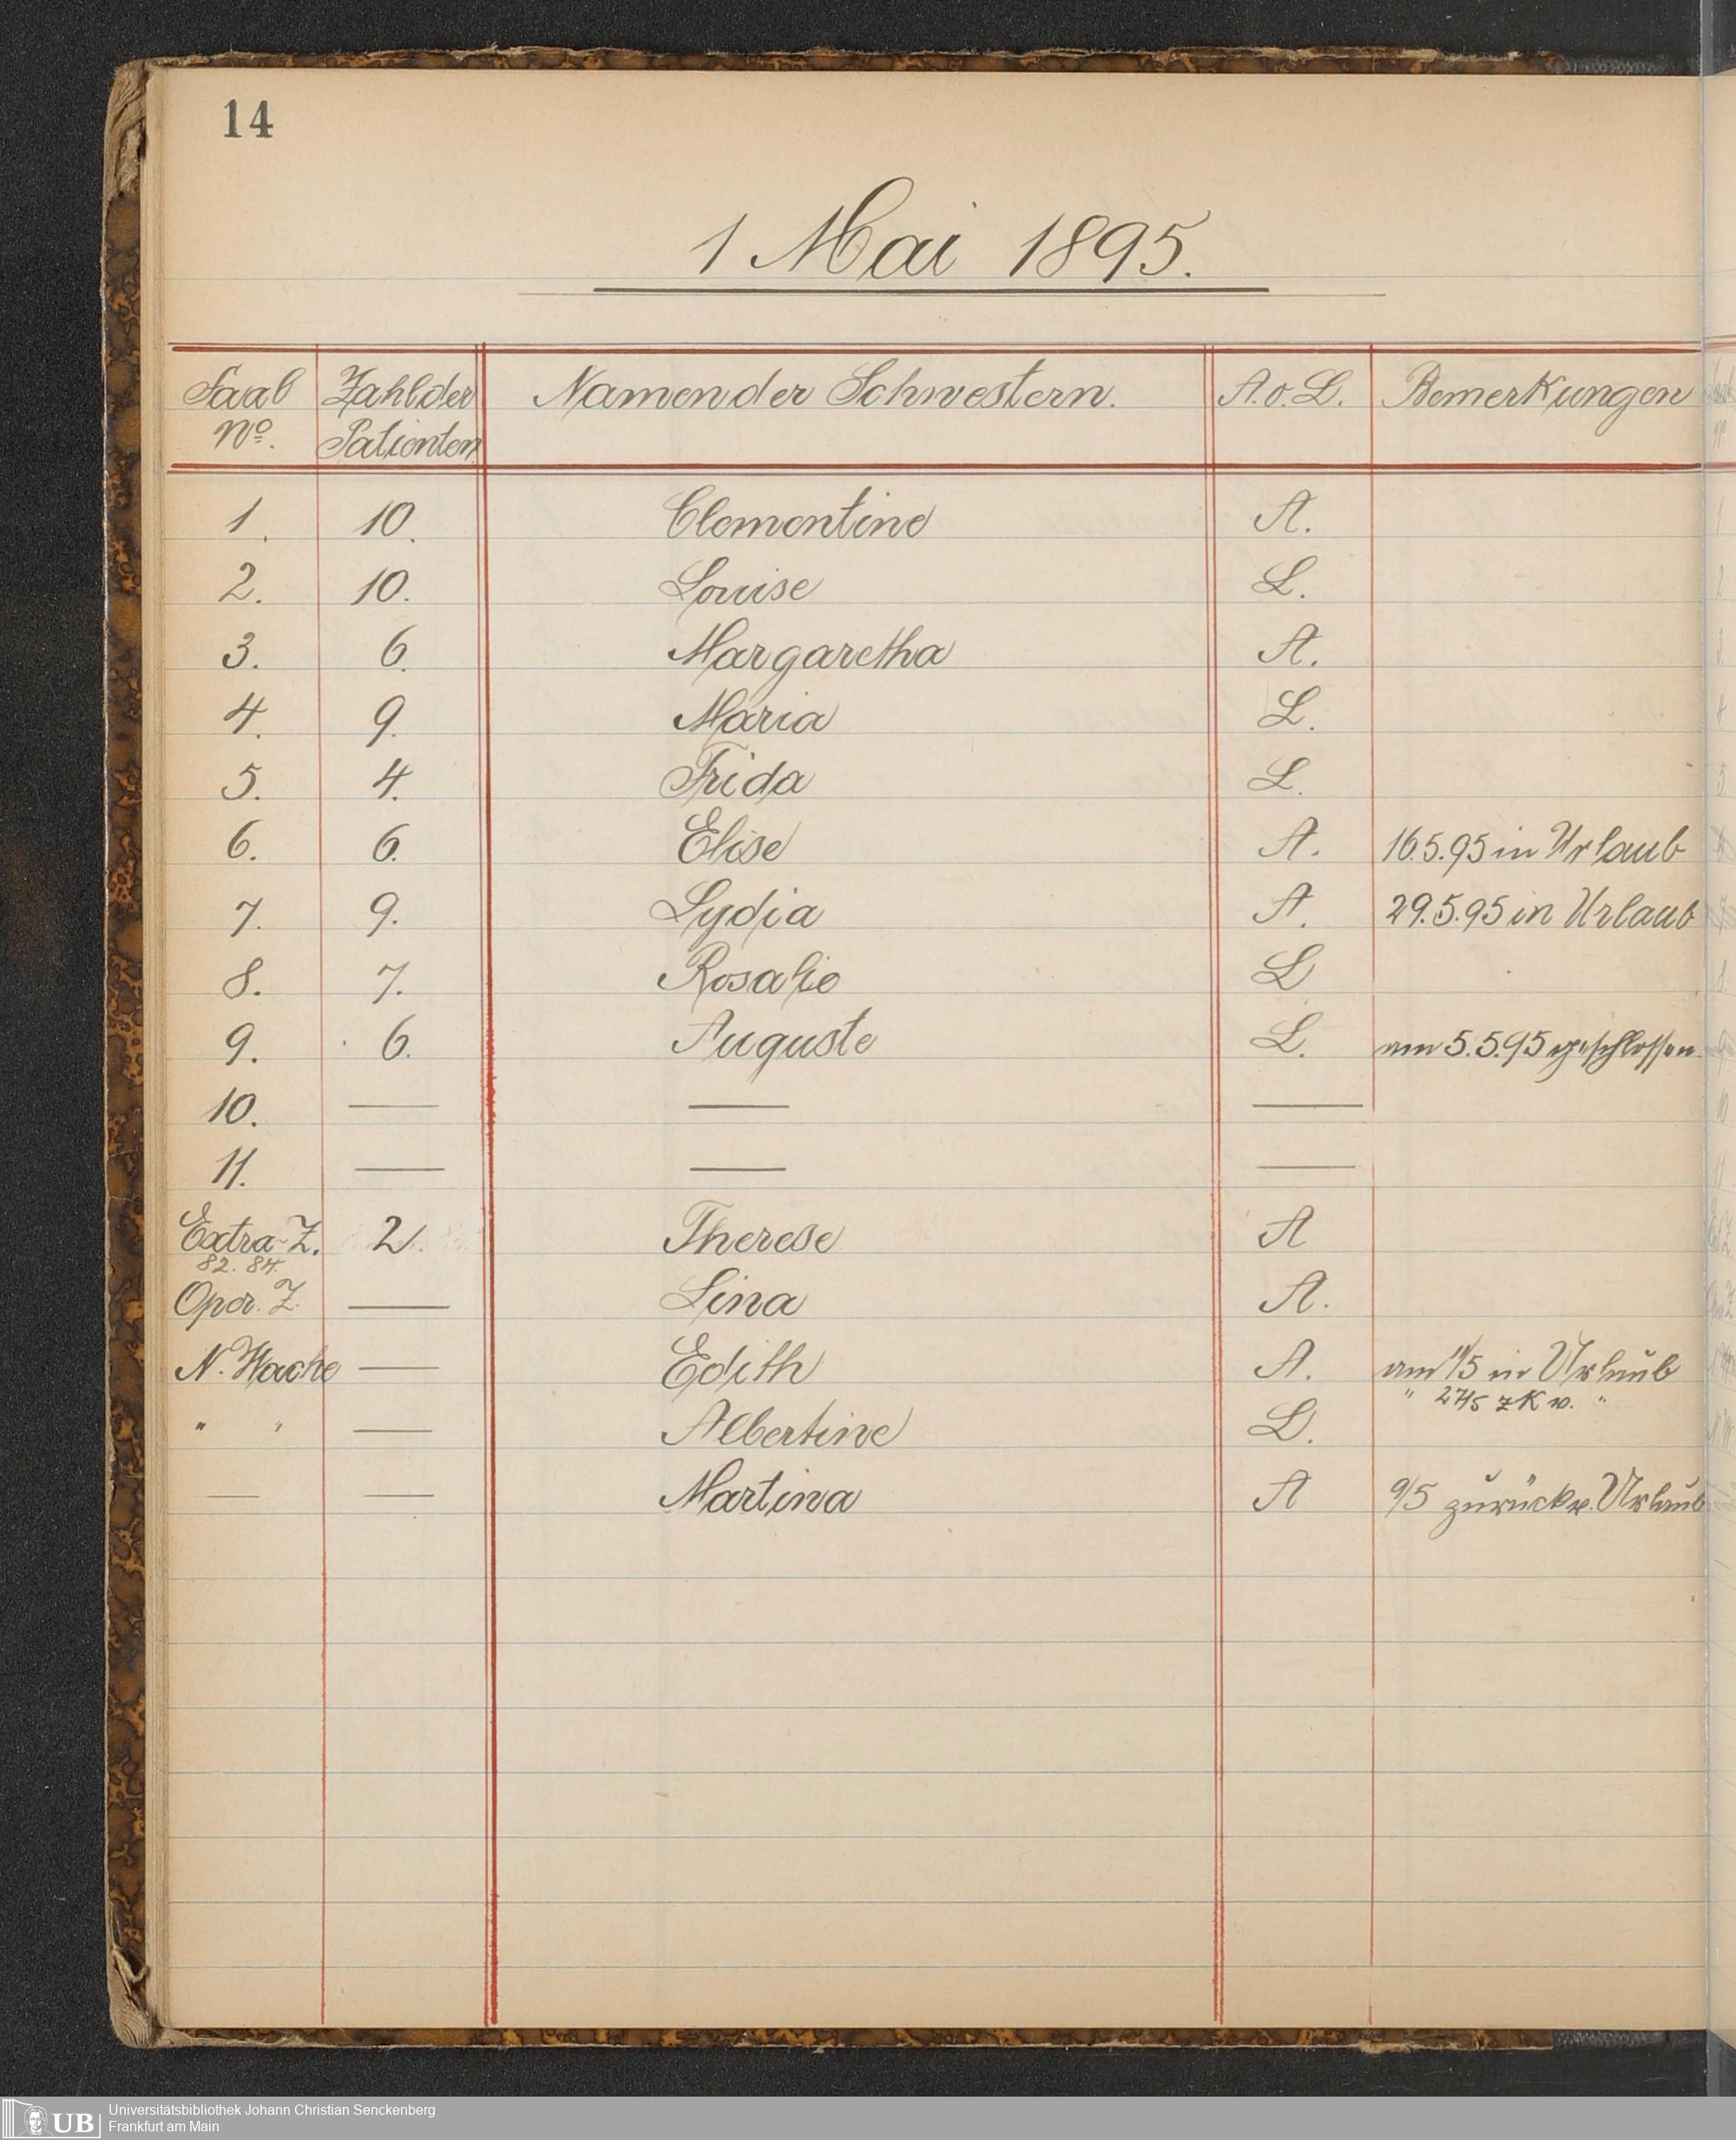 14
1 Mai 1895.
Saal No. Zahl der Patienten Namen der Schwestern. A. o. L. Bemerkungen
1. 10. Clementine A.
2. 10. Louise L.
3. 6. Margaretha A.
4. 9. Maria L.
5. 4. Frida L.
6. 6. Elise A. 16.5.95 in Urlaub
7. 9. Lydia A. 29.5.95 in Urlaub
8. 7. Rosalie L
9. 6. Auguste L. am 5.5.95 geschlossen.
10. — — —
11. — — —
Extra-Z. 2. Therese A
82. 84.
Oper. Z. — Lina A.
N. Wache — Edith A. am 11/5 in Urlaub
" 27/5 zk v. "
" " — Albertine L.
— — Martina A 9/5 zurück v. Urlaub
UB
Universitätsbibliothek Johann Christian Senckenberg
Frankfurt am Main